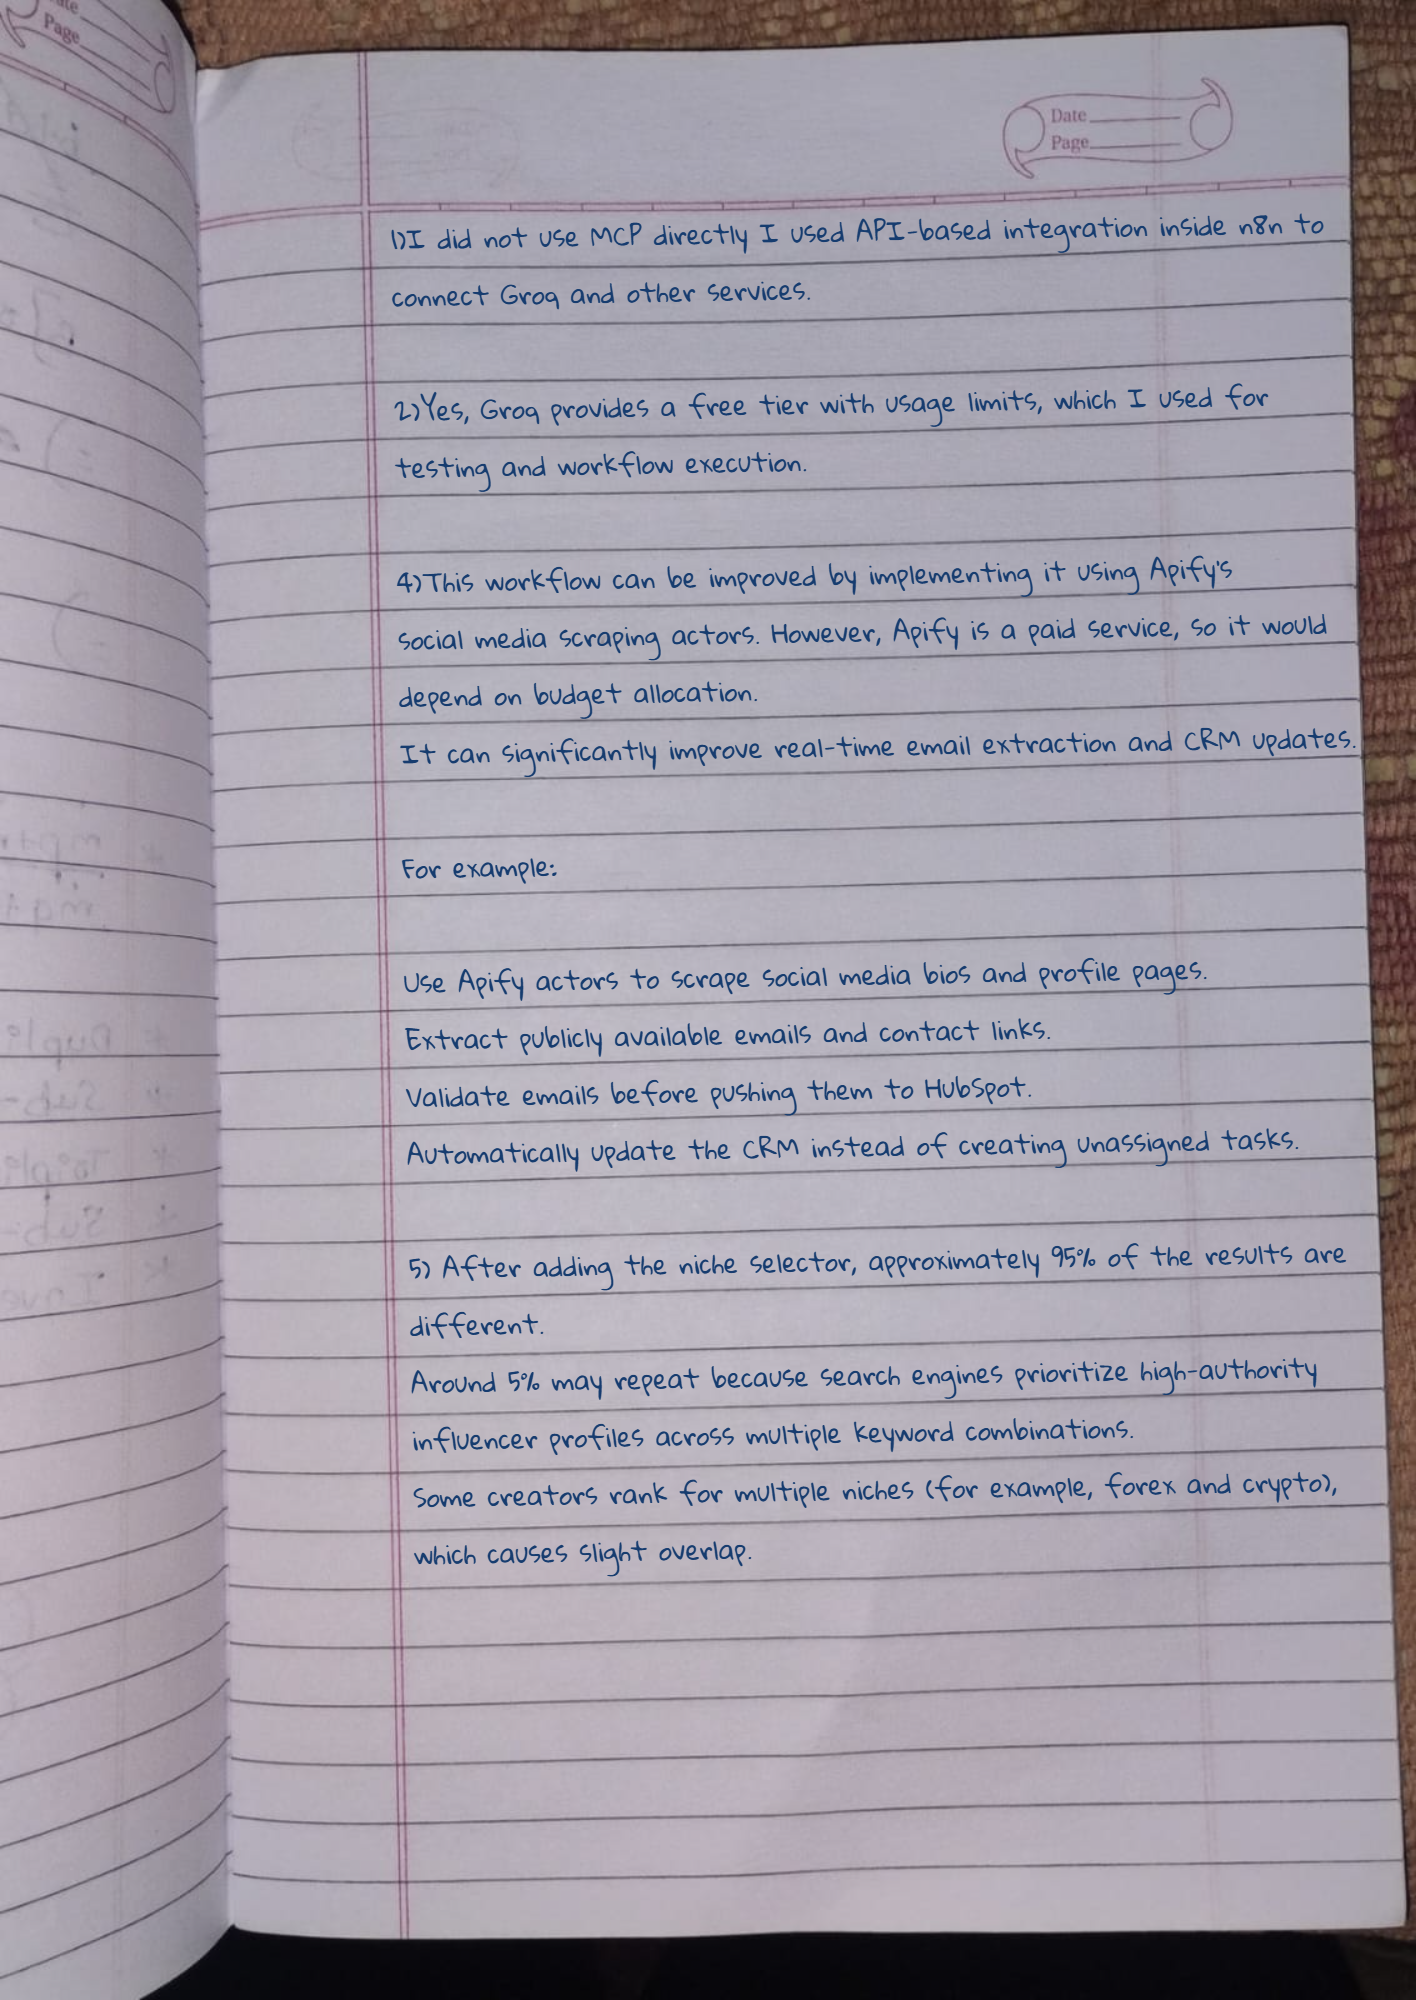 Date
Page
Date
Page
1)I did not use MCP directly I used API-based integration inside n8n to
connect Groq and other services.
2)Yes, Groq provides a free tier with usage limits, which I used for
testing and workflow execution.
4)This workflow can be improved by implementing it using Apify's
social media scraping actors. However, Apify is a paid service, so it would
depend on budget allocation.
It can significantly improve real-time email extraction and CRM updates.
For example:
Use Apify actors to scrape social media bios and profile pages.
Extract publicly available emails and contact links.
Validate emails before pushing them to HubSpot.
Automatically update the CRM instead of creating unassigned tasks.
5) After adding the niche selector, approximately 95% of the results are
different.
Around 5% may repeat because search engines prioritize high-authority
influencer profiles across multiple keyword combinations.
Some creators rank for multiple niches (for example, forex and crypto),
which causes slight overlap.